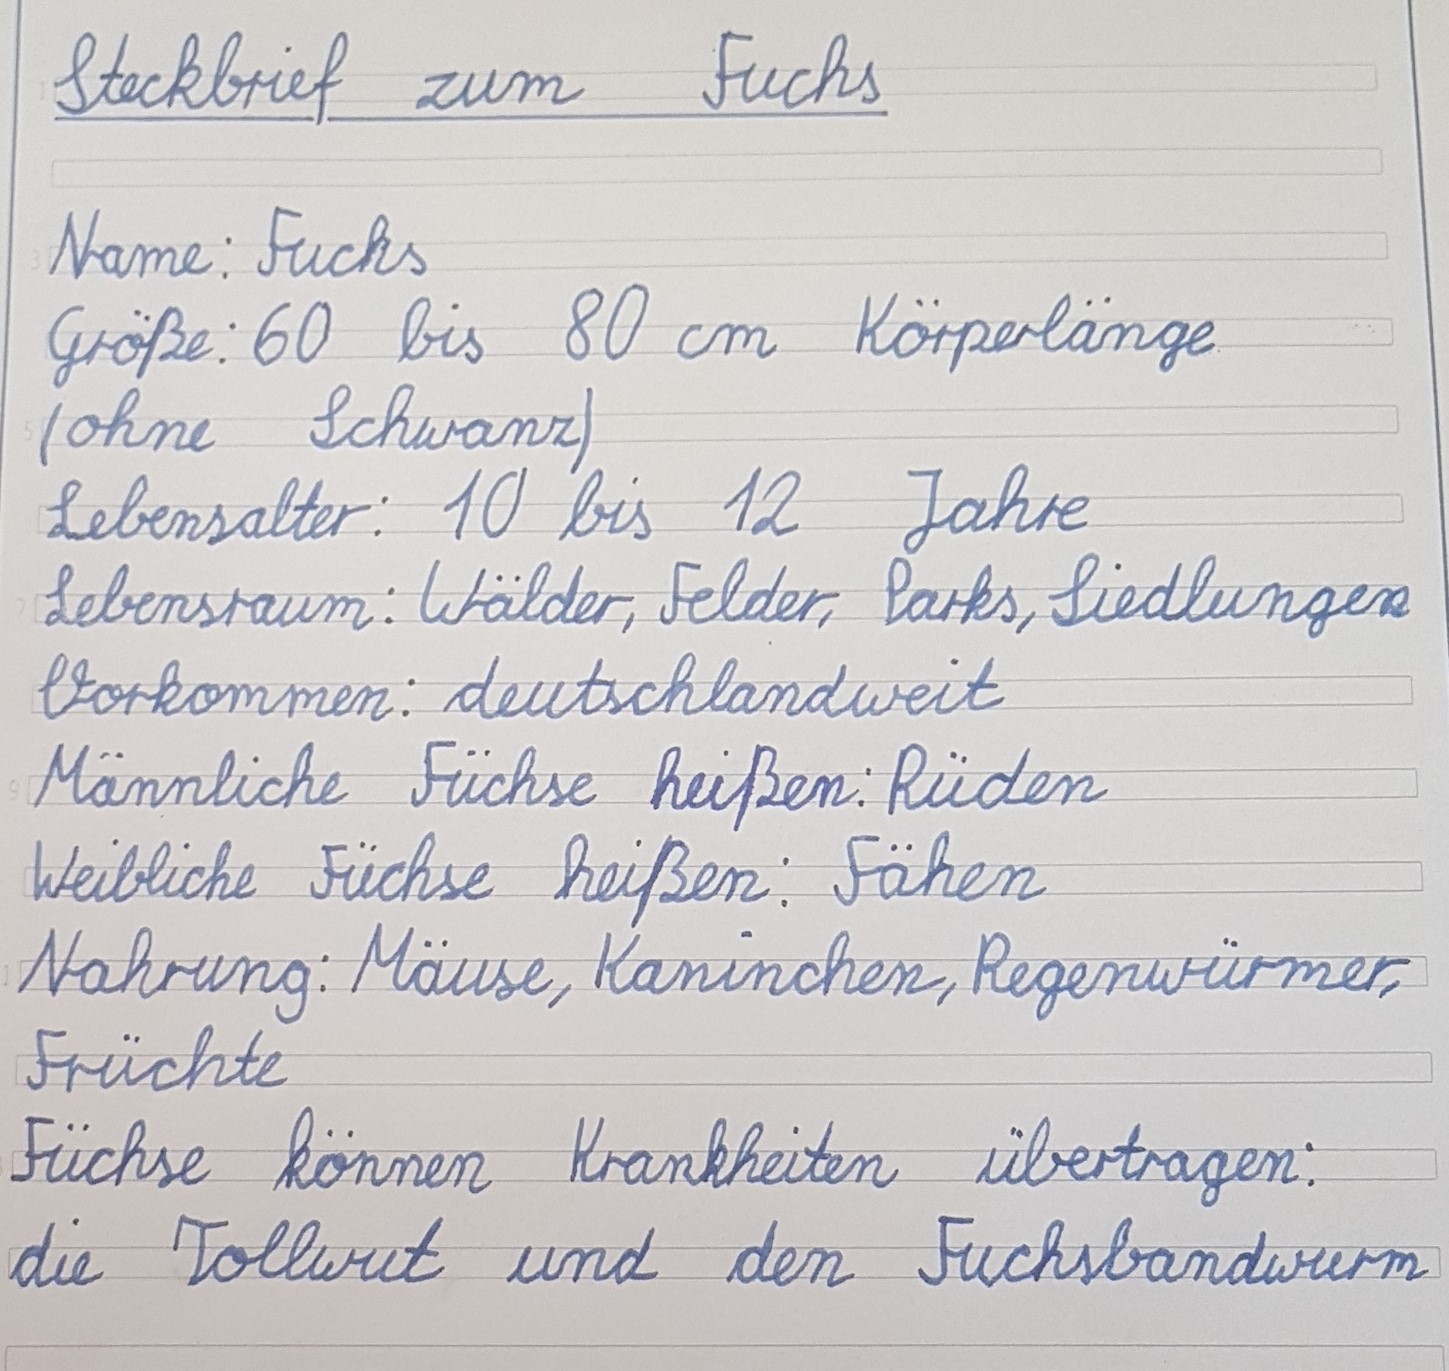 Steckbrief zum Fuchs
Name: Fuchs
Größe: 60 bis 80 cm Körperlänge
(ohne Schwanz)
Lebensalter: 10 bis 12 Jahre
Lebensraum: Wälder, Felder, Parks, Siedlungen
Vorkommen: deutschlandweit
Männliche Füchse heißen: Rüden
Weibliche Füchse heißen: Fähen
Nahrung: Mäuse, Kaninchen, Regenwürmer,
Früchte
Füchse können Krankheiten übertragen:
die Tollwut und den Fuchsbandwurm